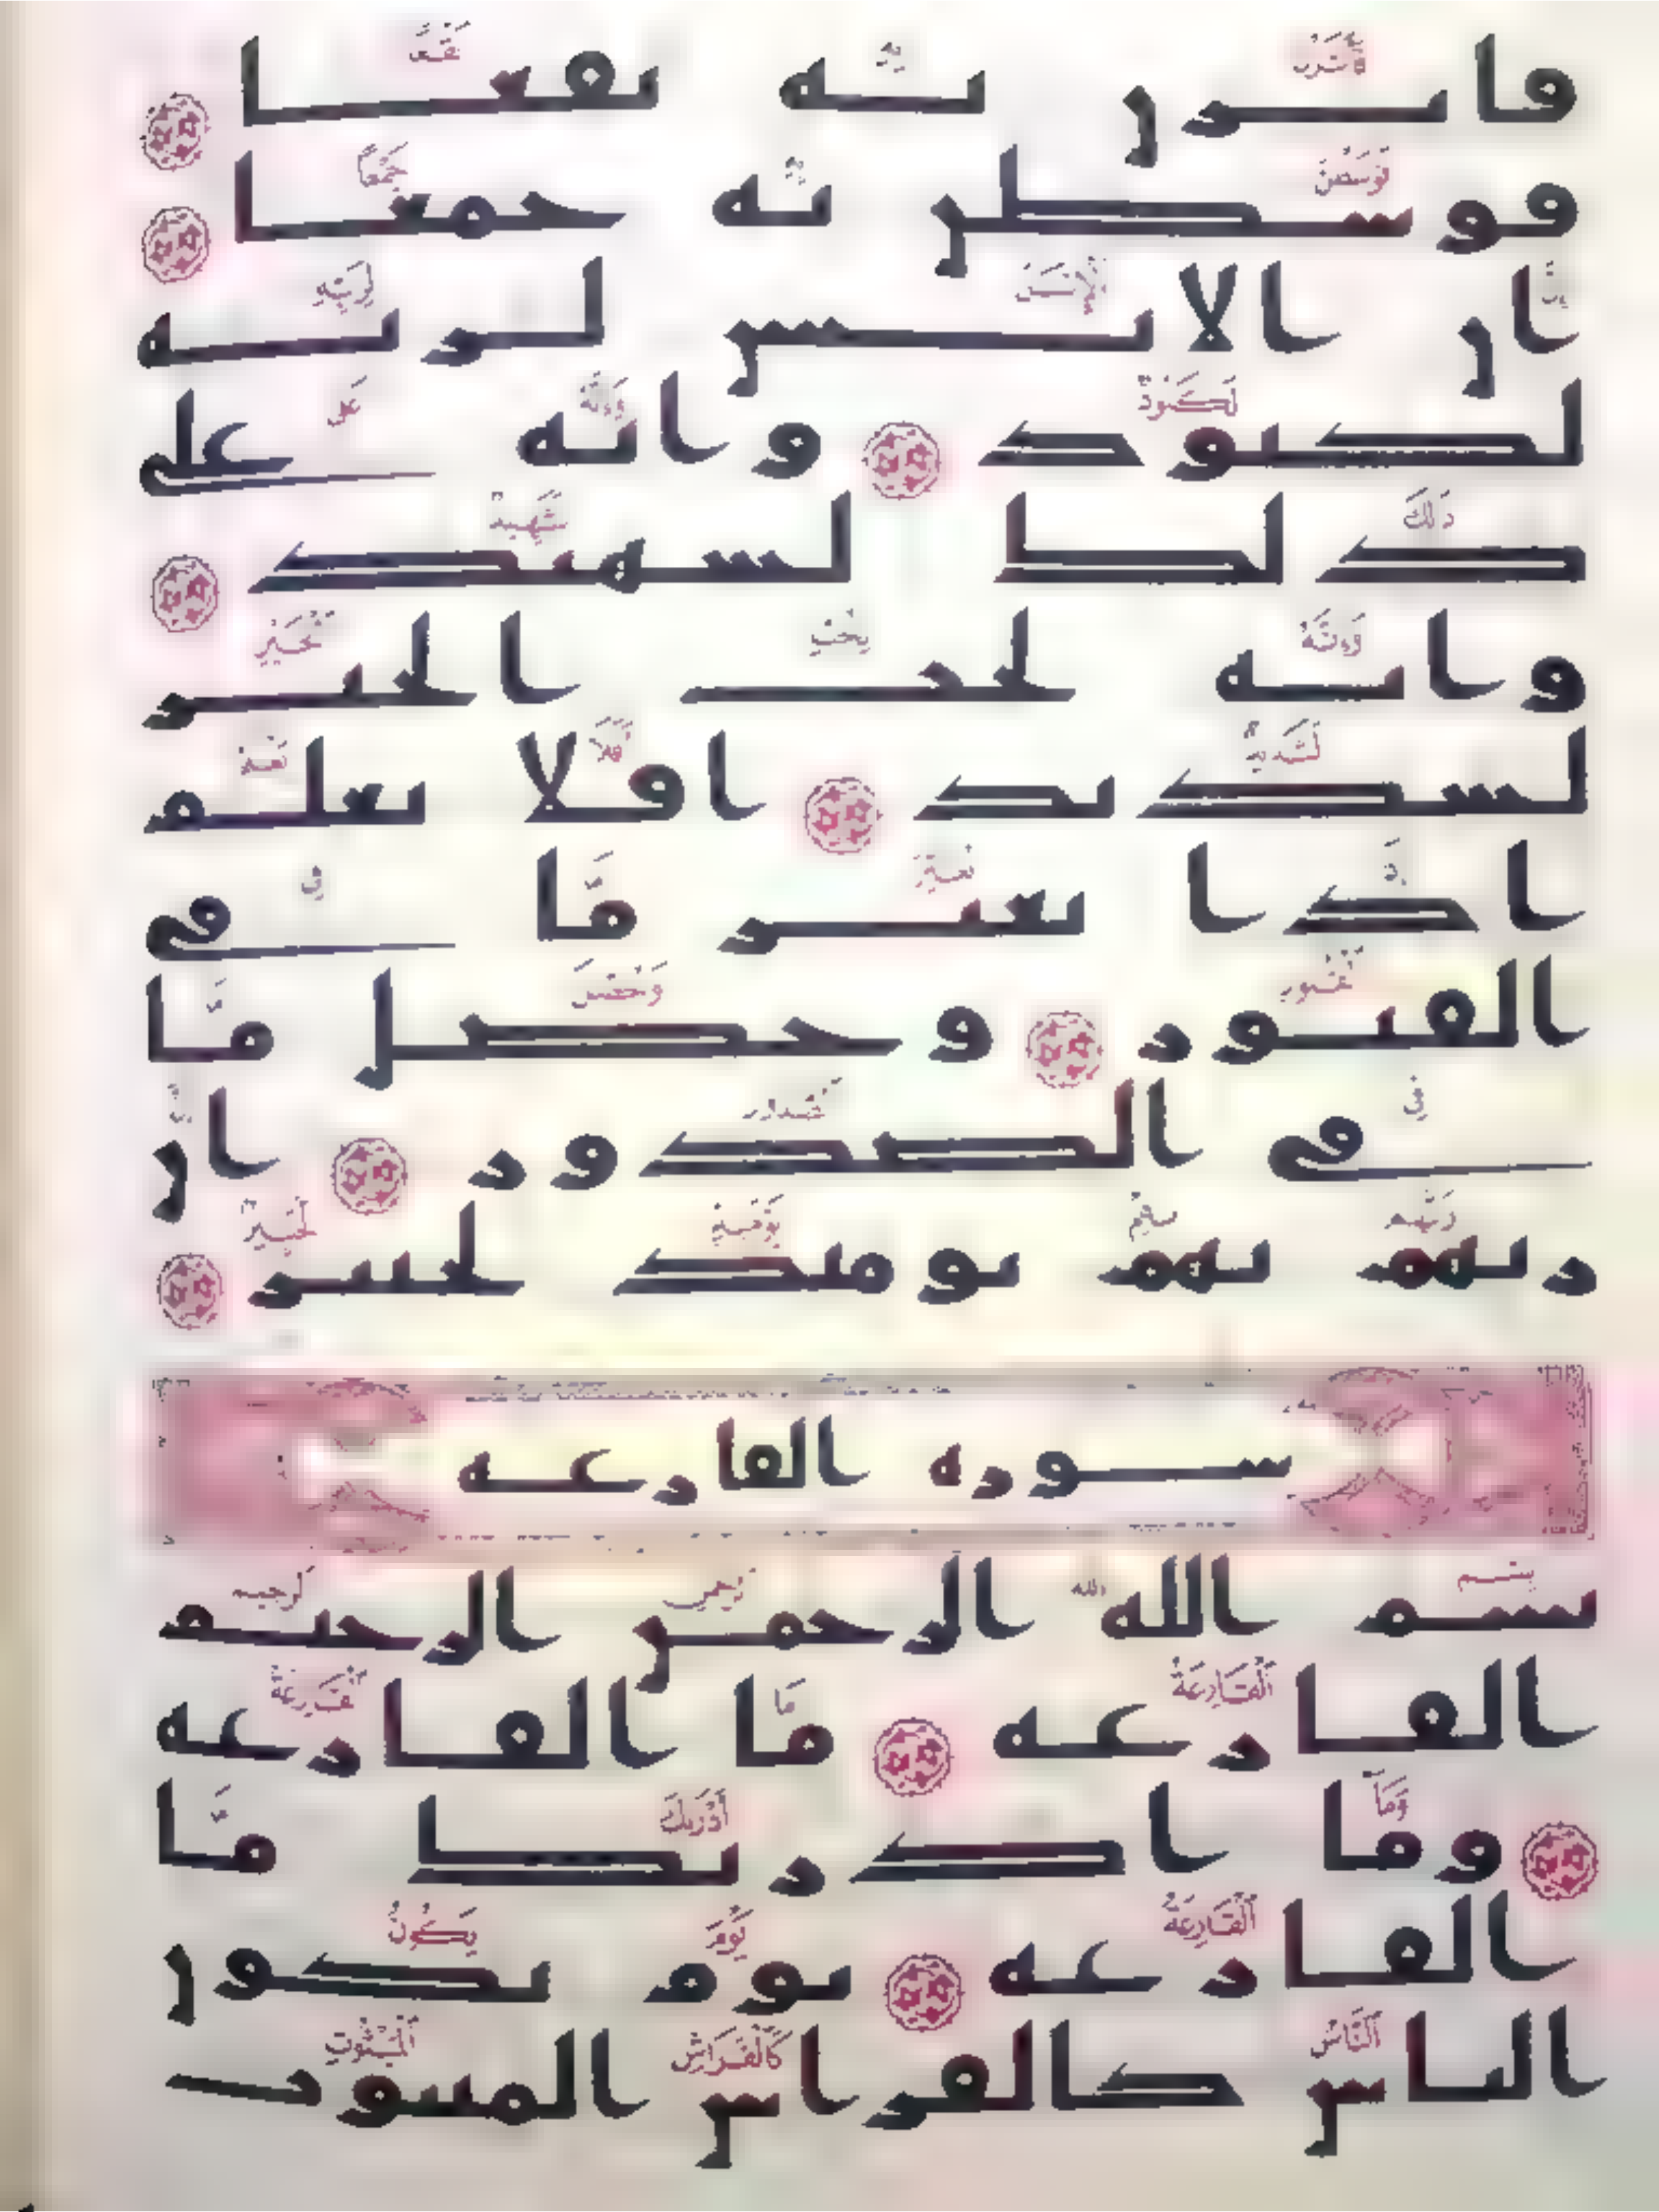 فاثرن به نقعا
فوسطن به جمعا
ان الانسن لربه
لكنود وانه على
ذلك لشهيد
وانه لحب الخير
لشديد افلا يعلم
اذا بعثر ما في
القبور وحصل ما
في الصدور ان
ربهم بهم يومئذ لخبير
سورة القارعة
بسم الله الرحمن الرحيم
القارعة ما القارعة
وما ادريك ما
القارعة يوم يكون
الناس كالفراش المبثوث